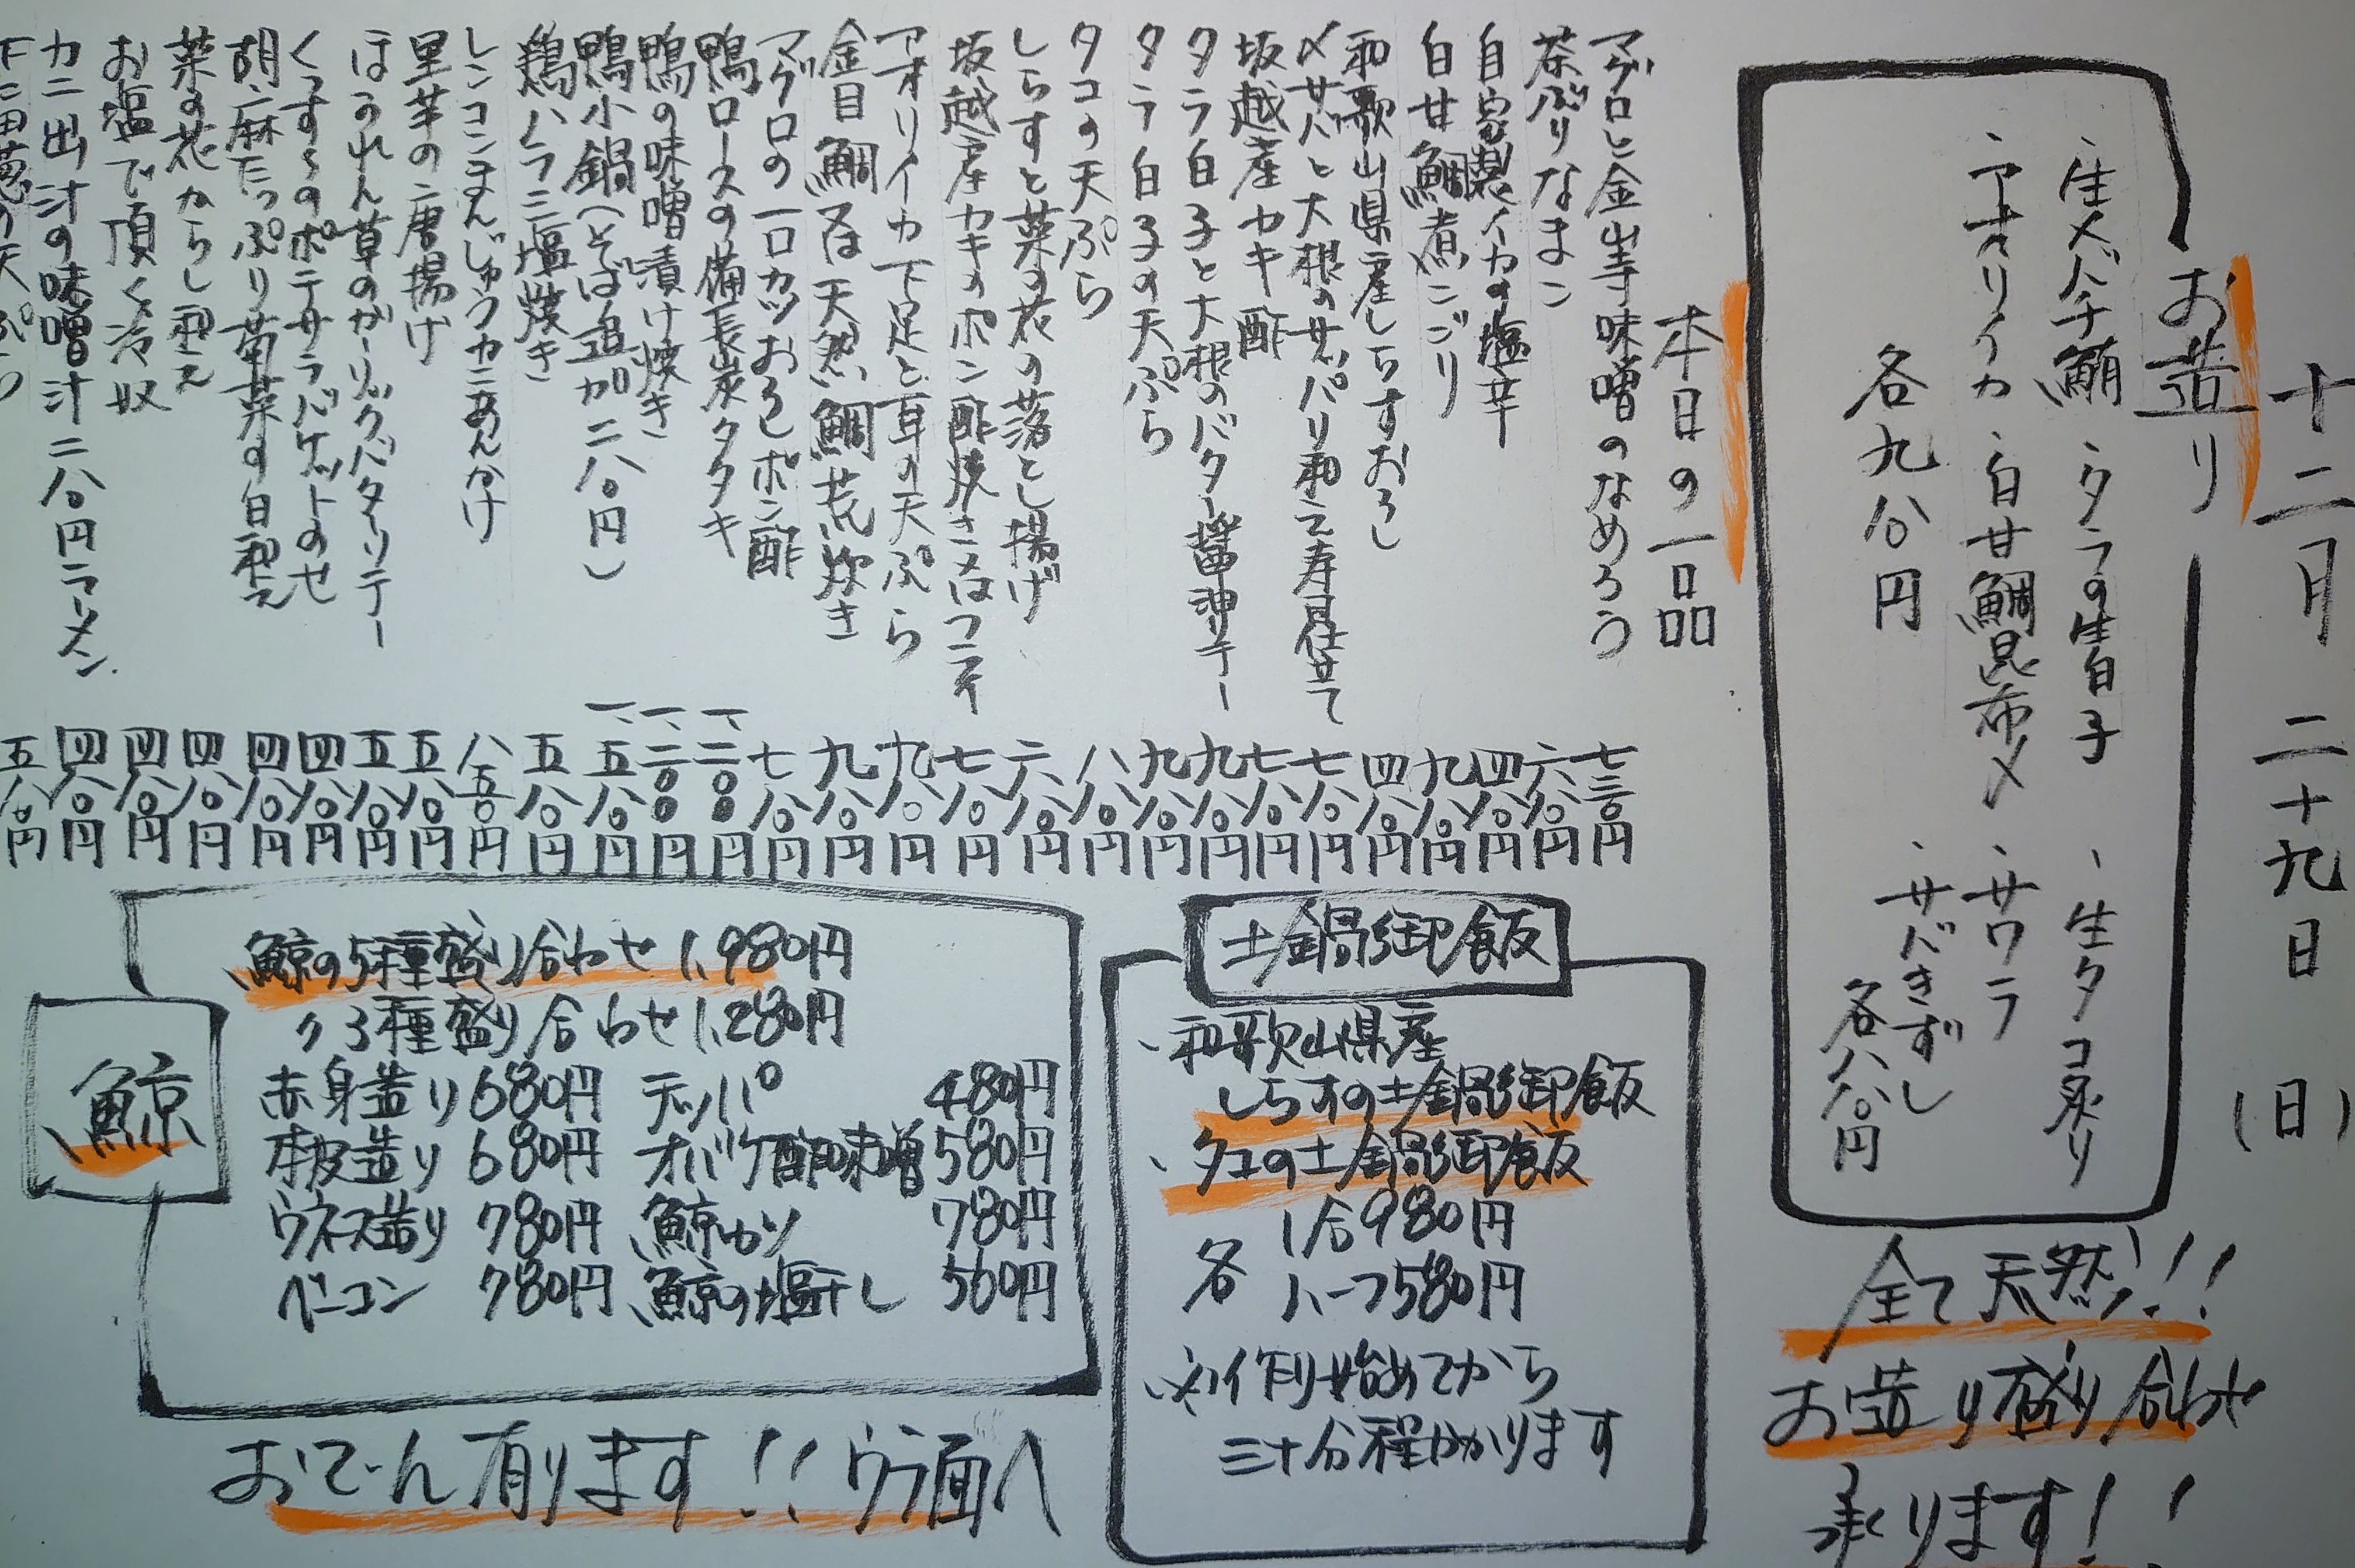 十二月二十九日(日)
お造り
・生メバチ鮪 ・タラの生白子 ・生タコ造り
・アオリイカ ・白甘鯛昆布〆 ・サワラ
・サバきずし
各九八〇円 各八八〇円
全て天然!!!
お造り盛り合わせ
承ります!!
本日の一品
マグロと金山寺味噌のなめろう 七三〇円
茶ぶりなまこ 六八〇円
自家製イカの塩辛 四八〇円
白甘鯛煮こごり 九八〇円
和歌山県産しらすおろし 四八〇円
〆サバと大根のサッパリ和え寿司仕立て 七八〇円
坂越産カキ酢 七八〇円
タラ白子と大根のバター醤油ソテー 九八〇円
タラ白子の天ぷら 九八〇円
タコの天ぷら 八八〇円
しらすと菜の花の落とし揚げ 六八〇円
坂越産カキのポン酢焼き又はフライ 七八〇円
アオリイカ下足と耳の天ぷら 九八〇円
金目鯛又は天然鯛荒炊き 九八〇円
マグロの一口カツおろしポン酢 七八〇円
鴨ロースの備長炭タタキ 一、二〇〇円
鴨の味噌漬け焼き 一、二〇〇円
鴨小鍋(そば追加二八〇円) 一、五八〇円
鶏ハラミ塩焼き 五八〇円
レンコンまんじゅうカニあんかけ 八五〇円
里芋の唐揚げ 五八〇円
ほうれん草のガーリックバターソテー 五八〇円
くんすモのポテサラバケットのせ 四八〇円
胡麻たっぷり菊菜の白和え 四八〇円
菜の花からし和え 四八〇円
お塩で頂く冷奴 四八〇円
カニ出汁の味噌汁二八〇円ラーメン 四八〇円
下仁田葱の天ぷら 五八〇円
土鍋御飯
・和歌山県産
しらすの土鍋御飯
・タコの土鍋御飯
各 1合980円
ハーフ580円
※作り始めてから
三十分程かかります
鯨
鯨の5種盛り合わせ 1,980円
〃3種盛り合わせ 1,280円
赤身造り 680円 テッパ 480円
本皮造り 680円 オバケ酢味噌 580円
ウネス造り 780円 鯨カツ 780円
ベーコン 780円 鯨の塩干し 560円
おでん有ります!!ウラ面へ